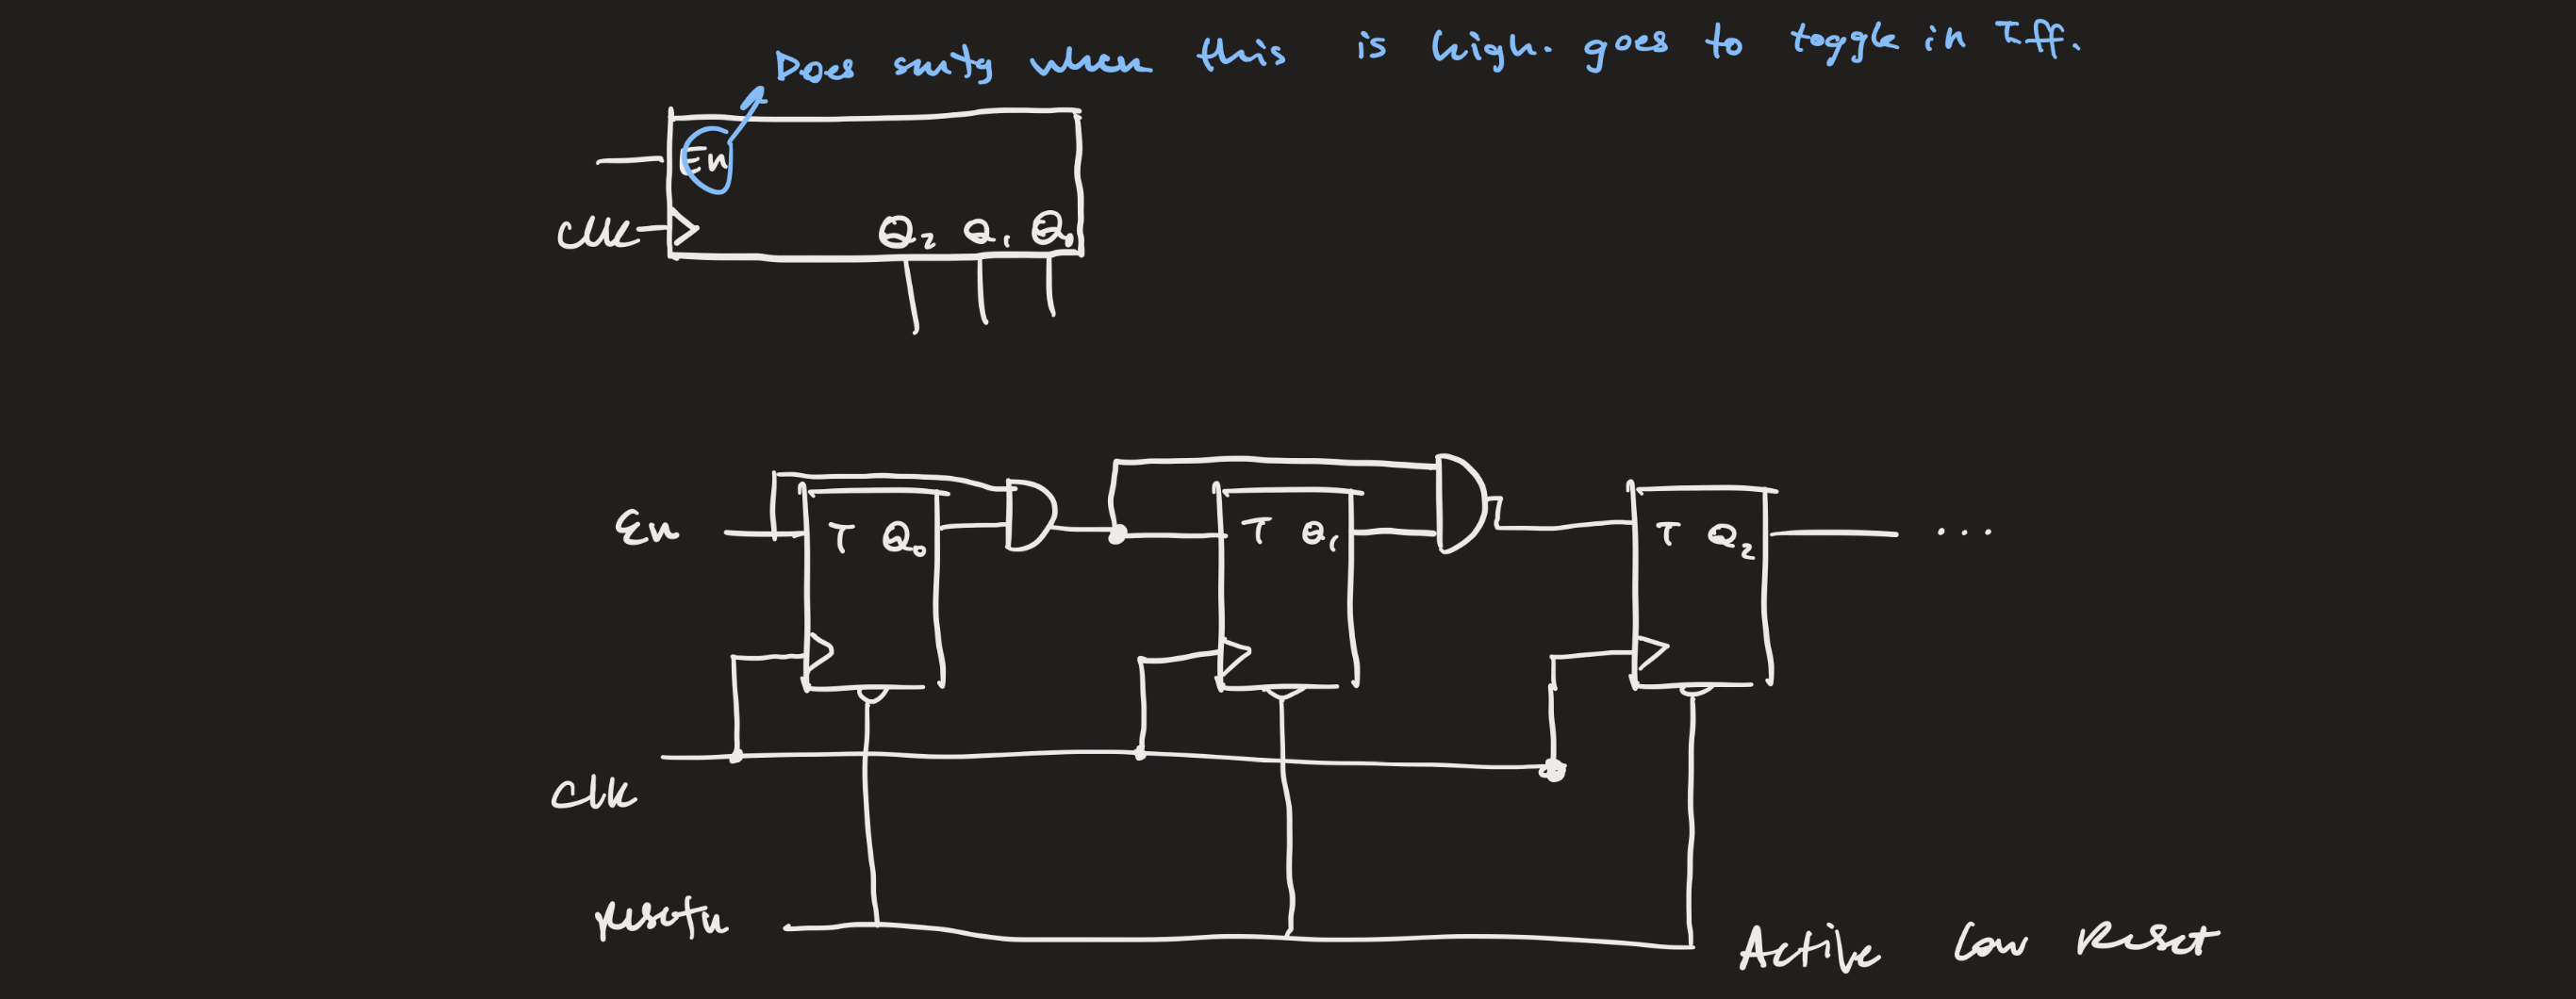 Does smtg when this is high. goes to toggle in Tff.
En
Clk
Q₂ Q₁ Q₀
En
T Q₀
T Q₁
T Q₂ ...
Clk
resetn
Active Low Reset